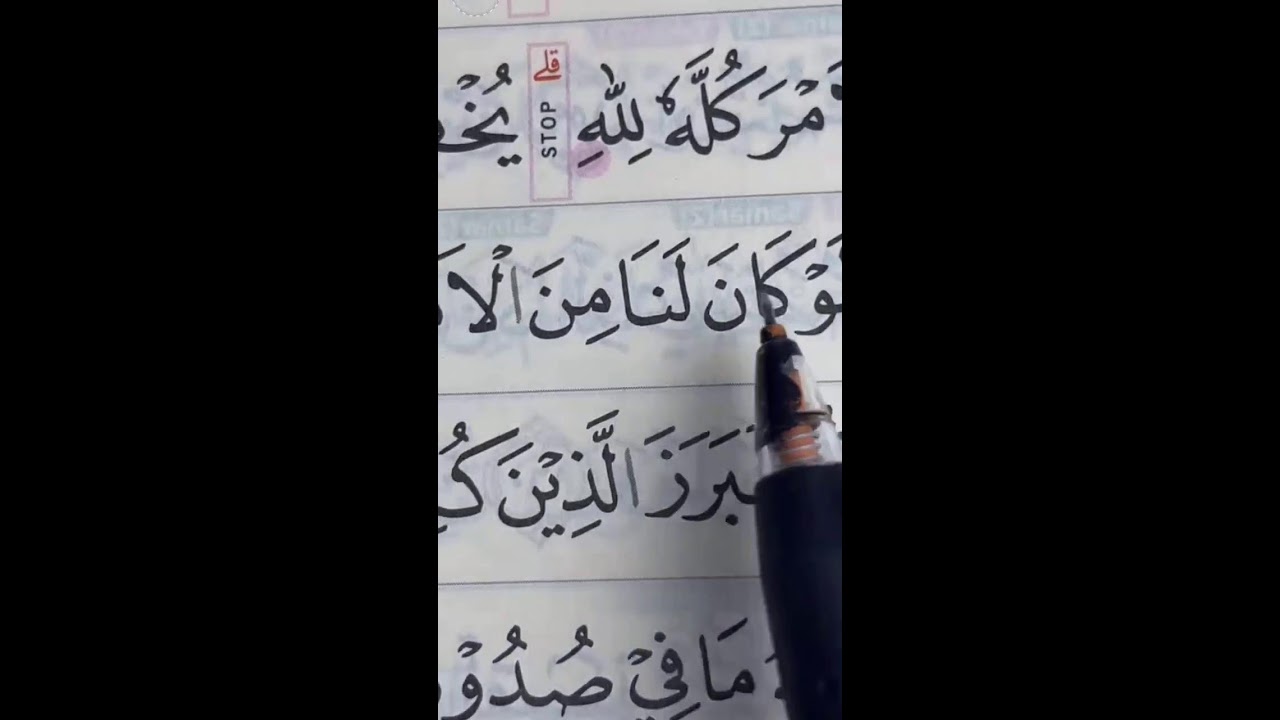 مْرَ كُلَّهٗ لِلّٰهِ قلے STOP يُخْ
وْ كَانَ لَنَا مِنَ الْاَ
بَرَزَ الَّذِيْنَ كُ
مَا فِيْ صُدُوْ